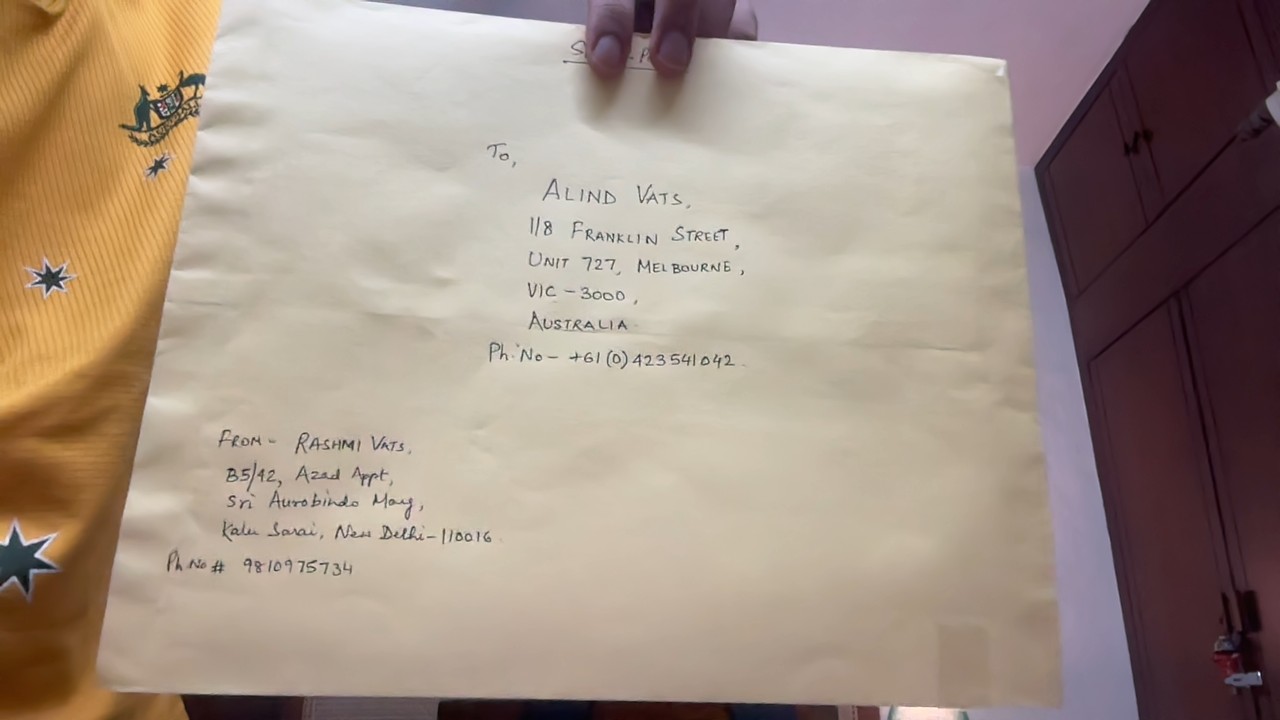 To,
ALIND VATS,
118 FRANKLIN STREET,
UNIT 727, MELBOURNE,
VIC - 3000,
AUSTRALIA
Ph. No - +61 (0) 423541042.
FROM - RASHMI VATS,
B5/42, Azad Appt,
Sri Aurobindo Marg,
Kalu Sarai, New Delhi - 110016.
Ph No # 9810975734